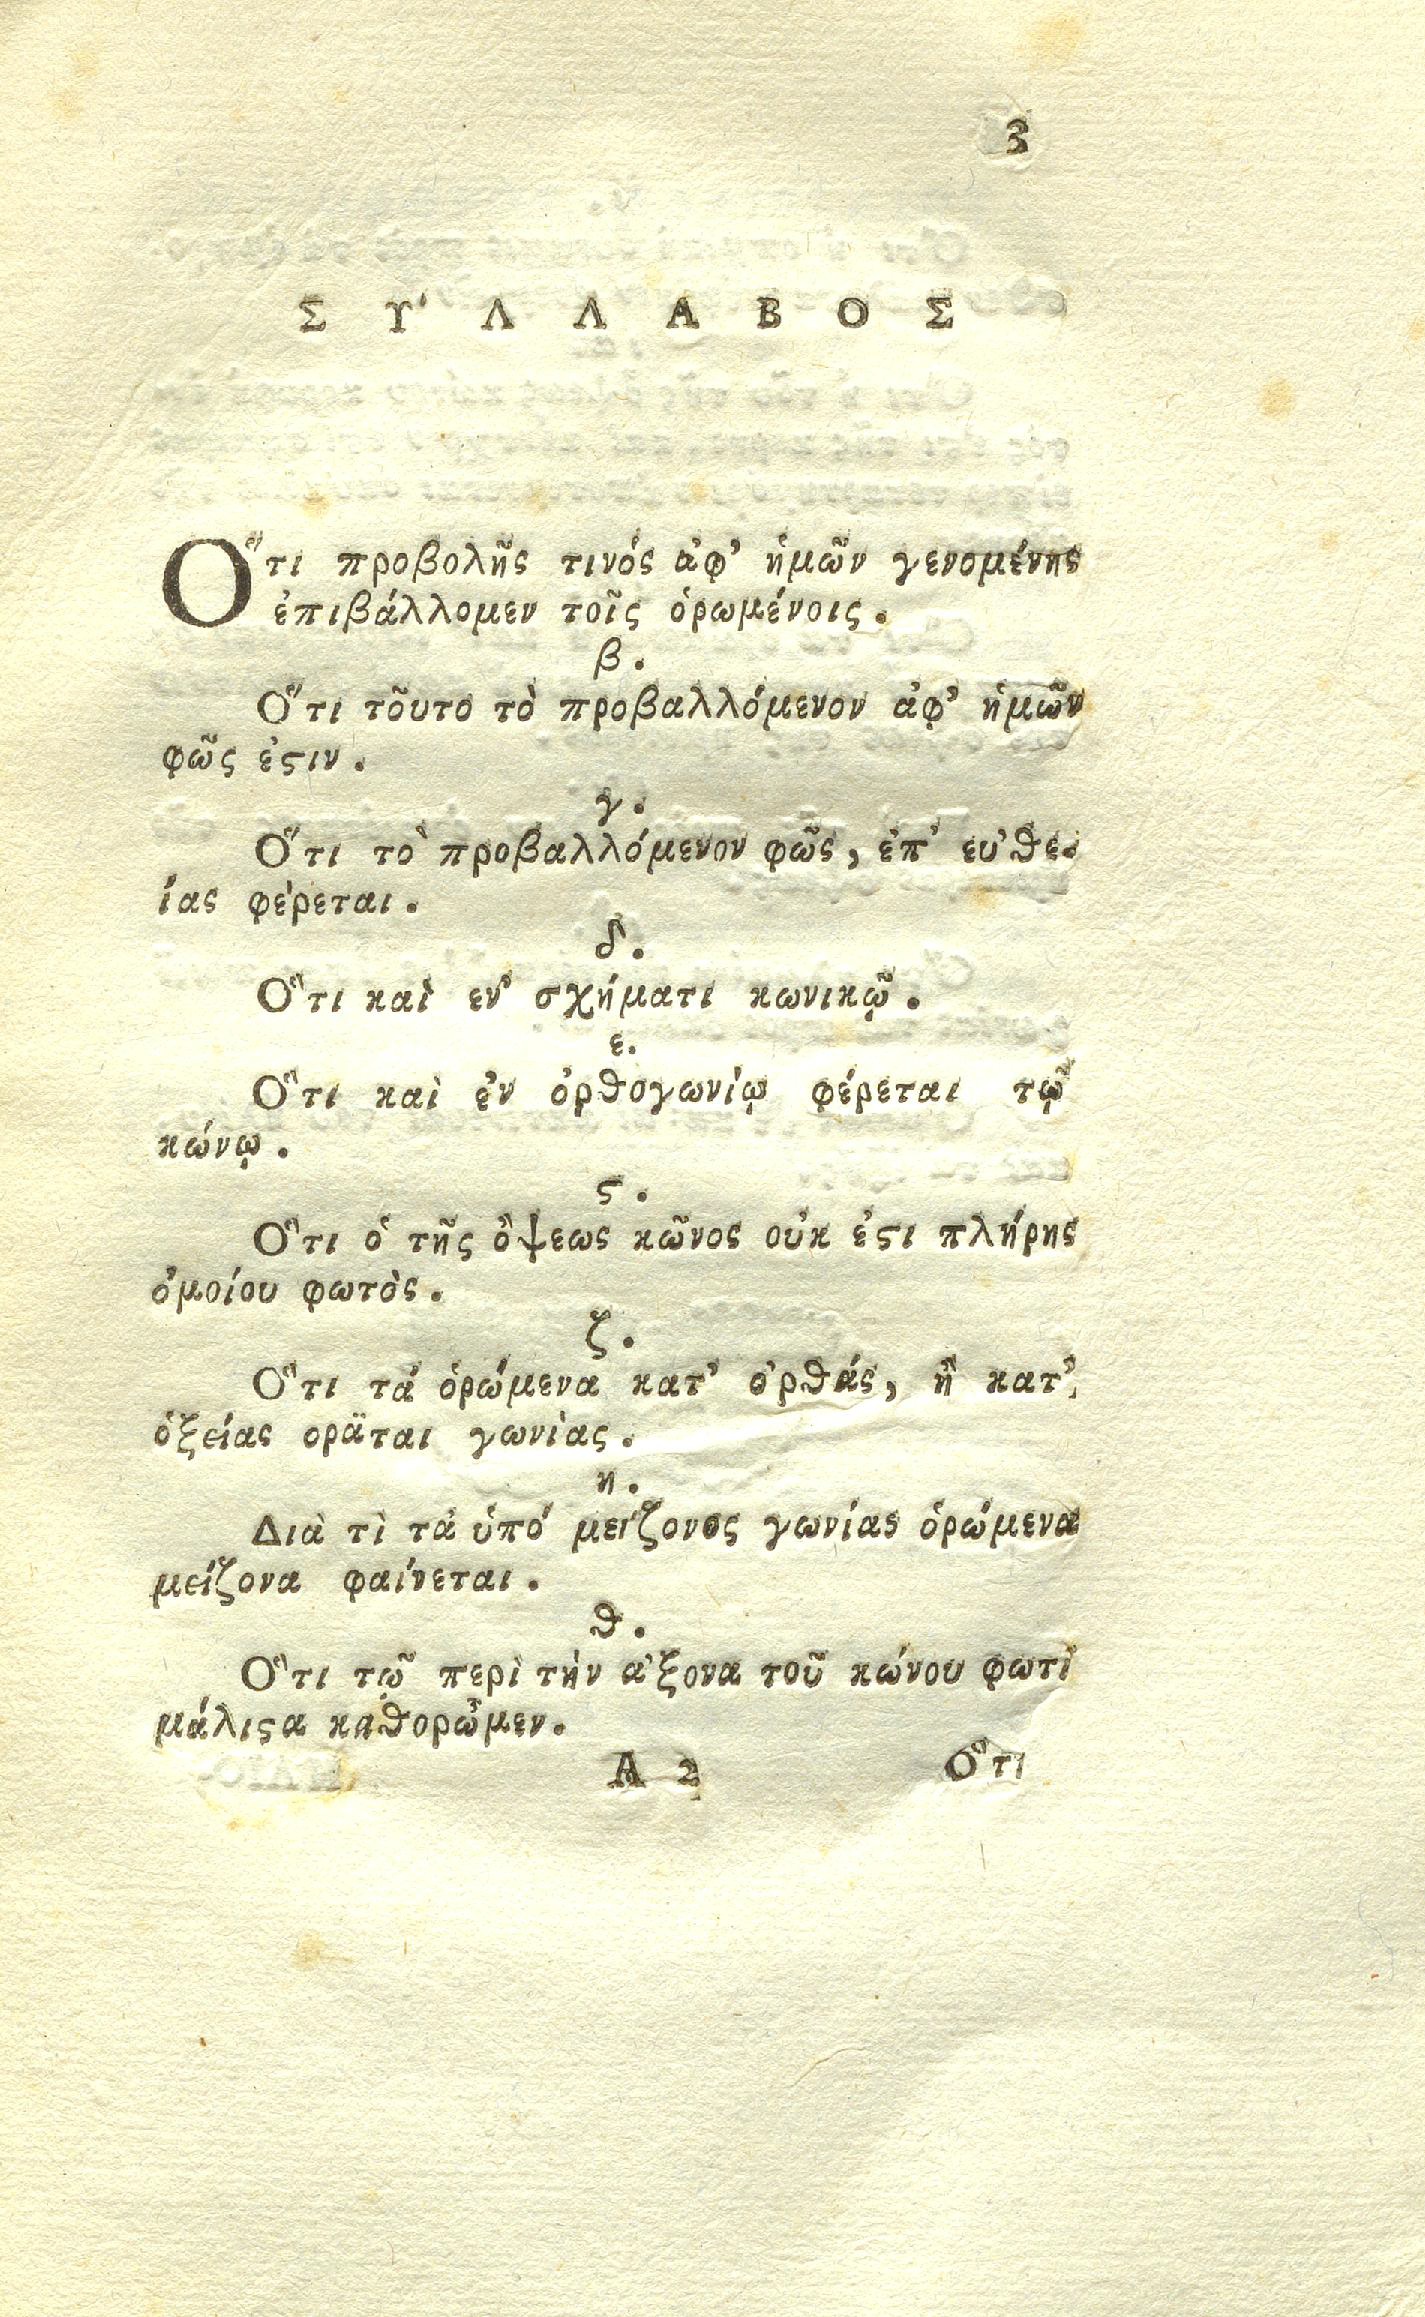 3
ΣΥ΄ΛΛΑΒΟΣ
Ὅτι προβολῆς τινός ἀφ’ ἡμῶν γενομένης
ἐπιβάλλομεν τοῖς ὁρωμένοις.
β.
Ὅτι τοῦτο τὸ προβαλλόμενον ἀφ’ ἡμῶν
φῶς ἐϛιν.
γ.
Ὅτι τὸ προβαλλόμενον φῶς, ἐπ’ εὐθε-
ίας φέρεται.
δ.
Ὅτι καὶ ἐν σχήματι κωνικῷ.
ε.
Ὅτι καὶ ἐν ὀρθογωνίῳ φέρεται τῷ
κώνῳ.
ϛ.
Ὅτι ὁ τῆς ὄψεως κῶνος οὐκ ἐϛι πλήρης
ὁμοίου φωτὸς.
ζ.
Ὅτι τά ὁρώμενα κατ’ ὀρθάς, ἢ κατ’
ὀξείας ορᾶται γωνίας.
η.
Διὰ τὶ τά ὑπό μείζονος γωνίας ὁρώμενα
μείζονα φαίνεται.
θ.
Ὅτι τῷ περὶ τὴν ἄξονα τοῦ κώνου φωτὶ
μάλιϛα καθορῶμεν.
A 2 Ὅτι